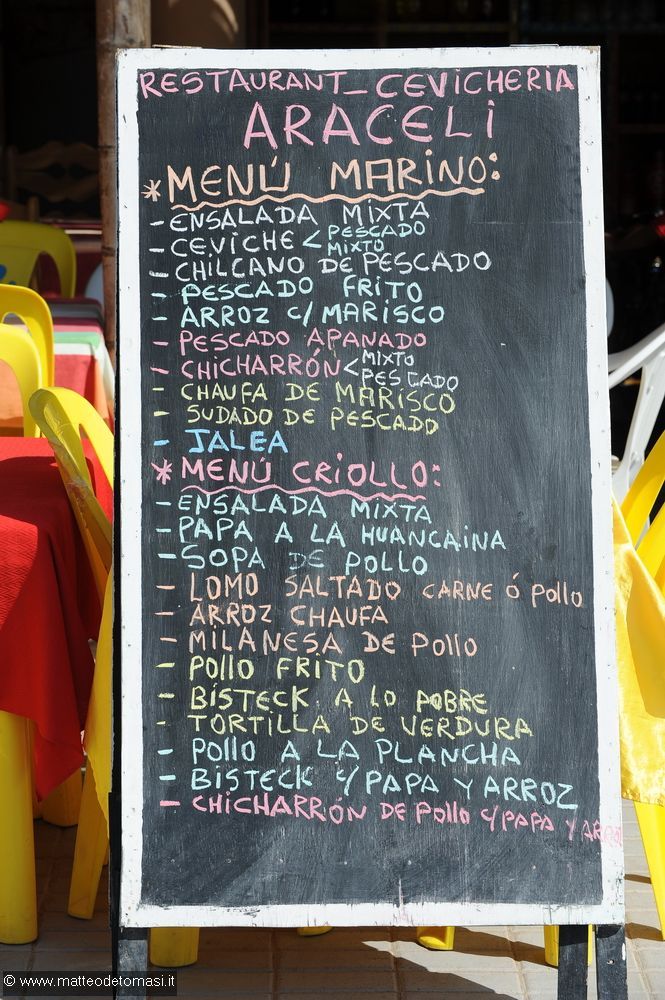 RESTAURANT_CEVICHERIA
ARACELI
*MENÚ MARINO:
-ENSALADA MIXTA
-CEVICHE < PESCADO
MIXTO
-CHILCANO DE PESCADO
-PESCADO FRITO
-ARROZ C/MARISCO
-PESCADO APANADO
-CHICHARRÓN < MIXTO
PESCADO
-CHAUFA DE MARISCO
-SUDADO DE PESCADO
-JALEA
*MENÚ CRIOLLO:
-ENSALADA MIXTA
-PAPA A LA HUANCAINA
-SOPA DE POLLO
-LOMO SALTADO CARNE Ó POLLO
-ARROZ CHAUFA
-MILANESA DE POLLO
-POLLO FRITO
-BISTECK A LO POBRE
-TORTILLA DE VERDURA
-POLLO A LA PLANCHA
-BISTECK C/PAPA Y ARROZ
-CHICHARRÓN DE POLLO C/PAPA Y ARROZ
© www.matteodetomasi.it